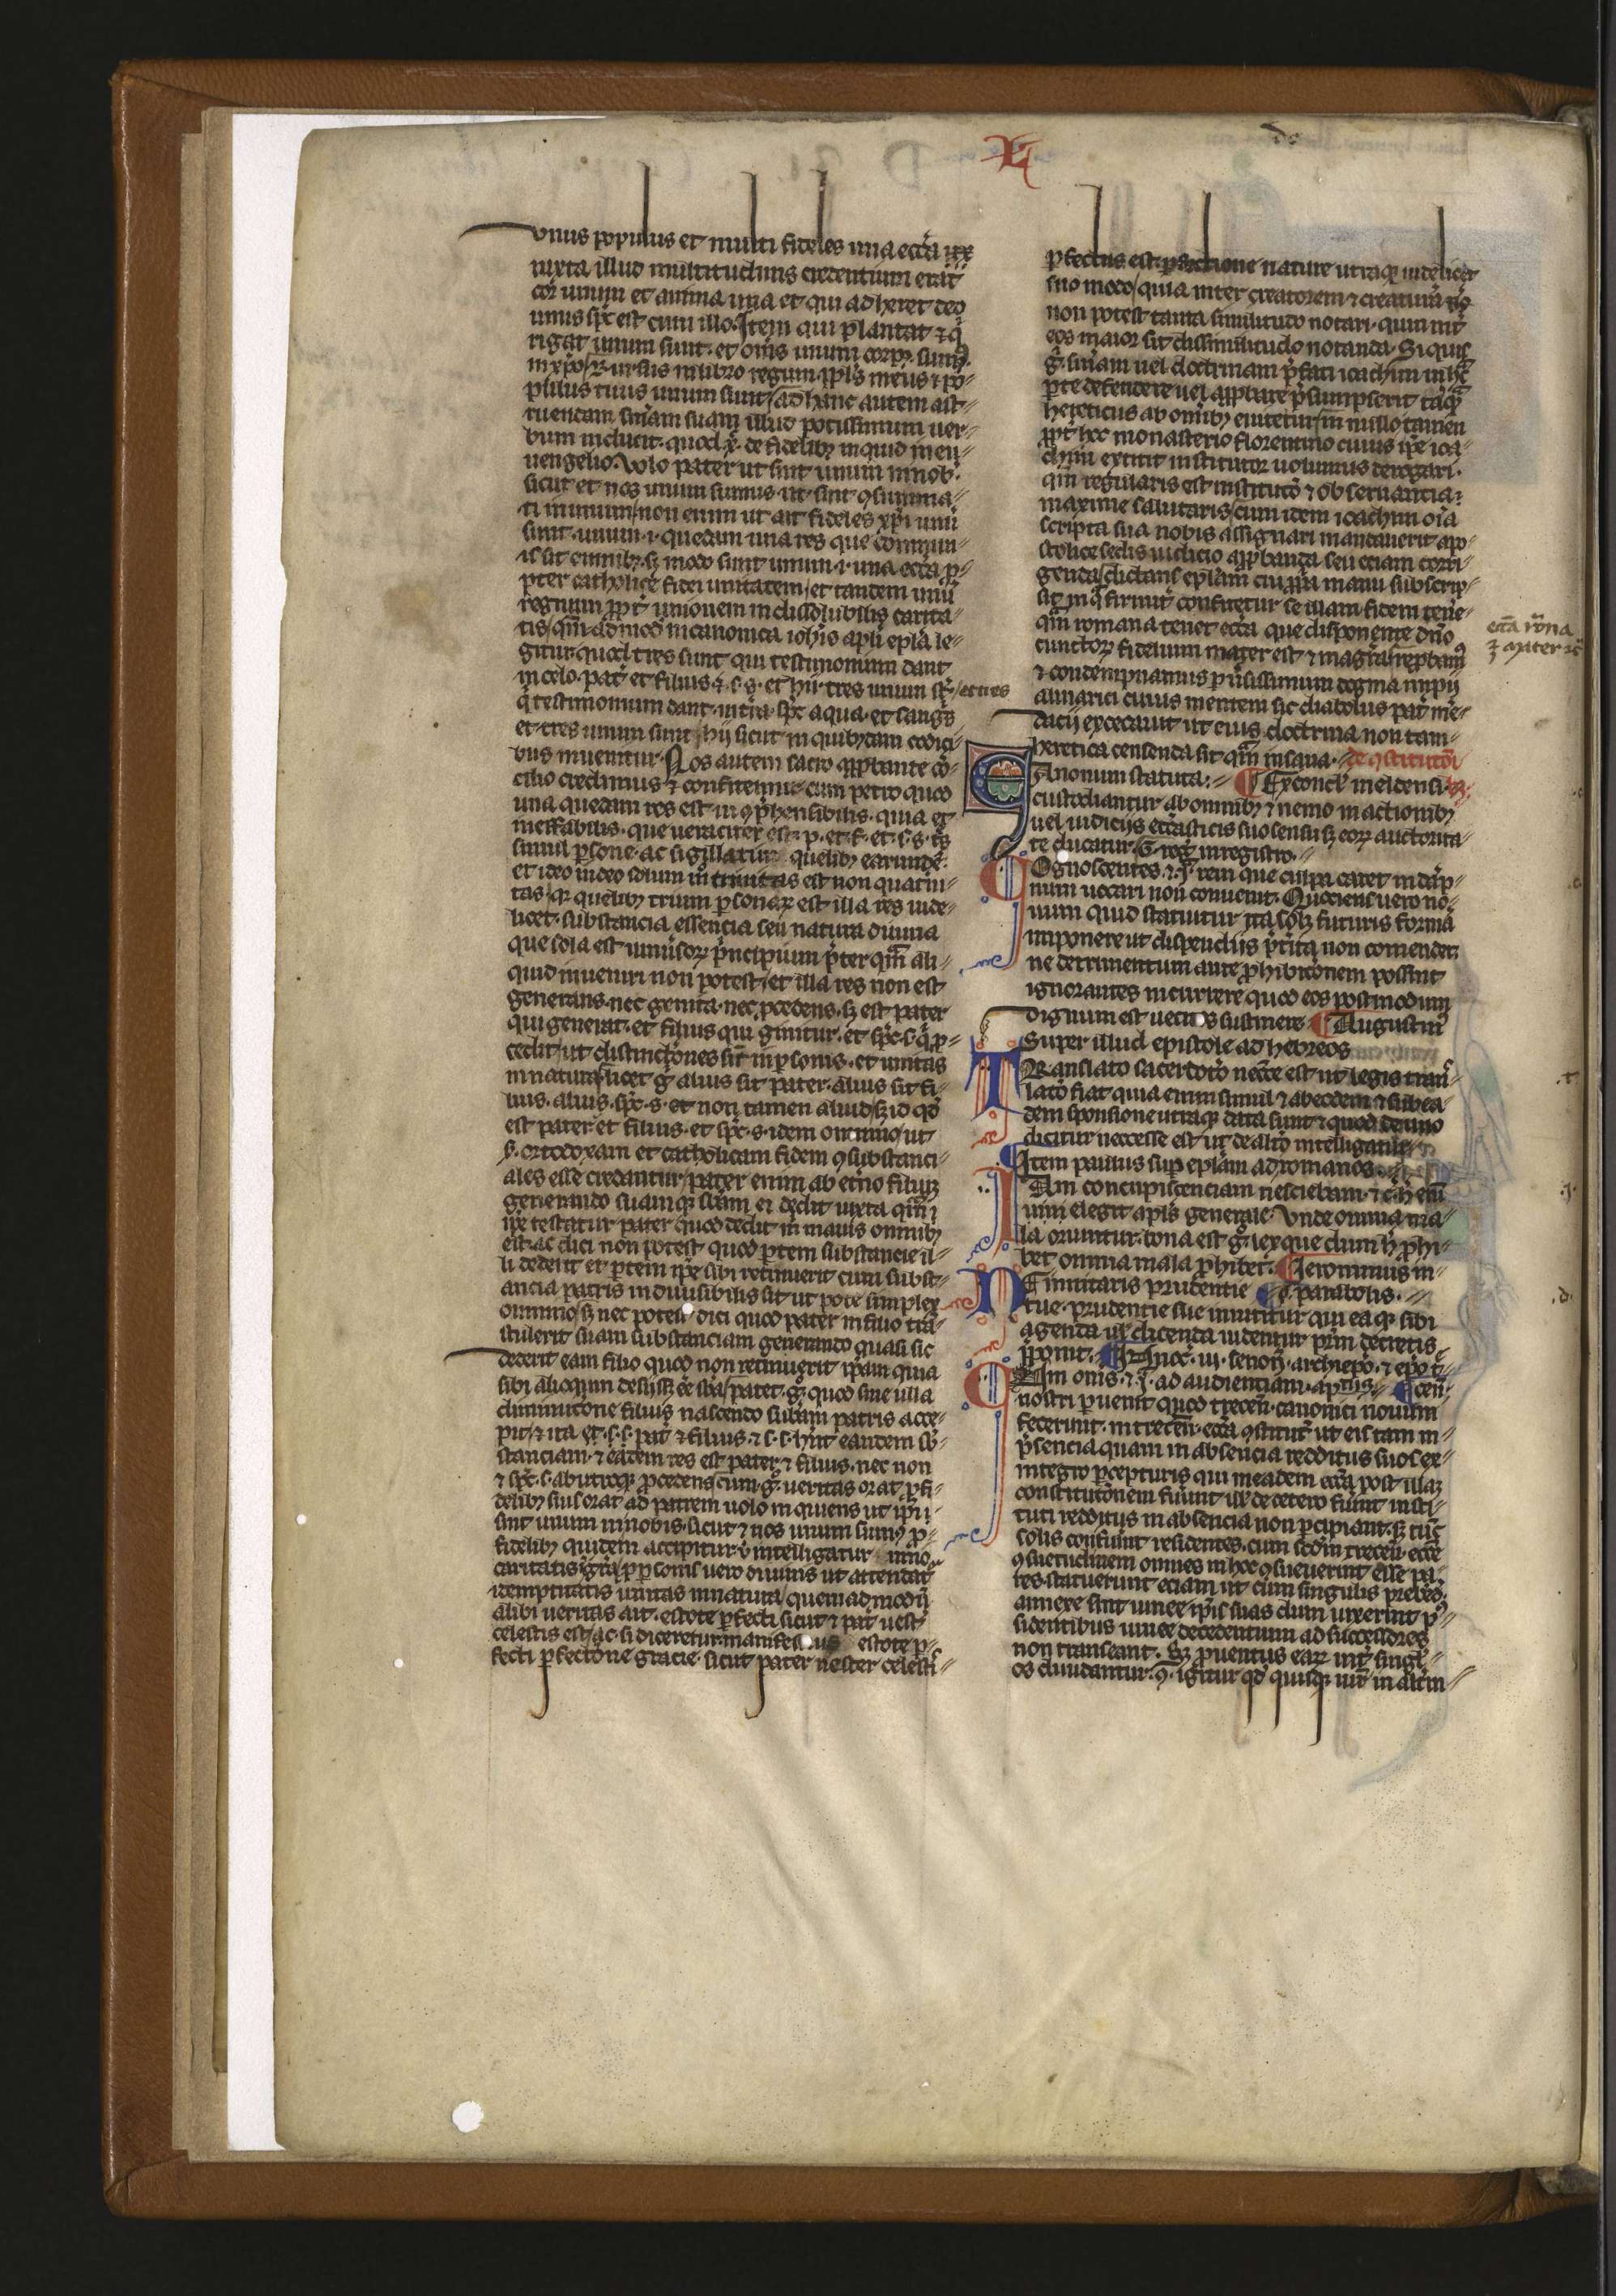 L
vnus populus et multi fideles una ecc̄a
iuxta illud multitudinis credentium erat
cor unum et anima una et qui adheret deo
unus sp̄c est cum illo. Item qui plantat ⁊ q̇
rigat unum sunt. et om̄s unum corpꝰ sumꝰ
in xp̄o. Rursus in libro regum. ppl̄s meus ⁊ po-
pulus tuus unum sunt ad hanc autem ast-
ruendam sn̄iam suam illud potissimum uer-
bum inducit. quod x̄. de fidelibꝫ inquid in eu-
uengelio. Volo pater ut sint unum in nob̄.
sicut et nos unum sumus ut sint ꝯsumma-
ti in unum non enim ut ait fideles xp̄i unū
sunt. unum .i. quedam una res que commun-
is sit omnibꝫ. sꝫ modo sunt unum .i. una ecc̄a ꝓ-
pter catholice fidei unitatem et tandem unū
regnum ꝓpt̄ unionem indissolubilis carita-
tis. qm̄admod̄ in canonica ioh̄is apl̄i ep̄la le-
gitur. quod tres sunt qui testimonium dant
in celo. pat̄ et filius ⁊ .s. s. et hii tres unum st̄ / et tres
q̇ testimonium dant. in t̄ra. sp̄c aqua. et sangꝰs
et tres unum sunt hii sicut in quibꝫdam codici-
bus inuenitur. Nos autem sacro aꝓbante cō-
cilio credimus ⁊ confitemur cum petro quod
una quedam res est incōp̄hensibilis. quia et
ineffabilis. que ueraciter est. p. et. f. et. s. s. tr̄s
simul ꝑsone. ac sigillatim quelibꝫ earundē.
et ideo in deo solum m̄ trinitas est non quatn̄i-
tas. qꝛ quelibꝫ trium ꝑsonarꝫ est illa res uide-
licet. substancia essencia seu natura diuina
que sola est uniu̇sorꝫ p̄ncipium p̄ter qm̄ ali-
quid inueniri non potest et illa res non est
generans. nec genita. nec ꝓcedens. sꝫ est pater
qui generat. et filius qui gignitur. et sp̄c. s. q̇ ꝓ-
cedit ut distinctōnes sīt in ꝑsonis. et unitas
in natura licet g̊ alius sit pater. alius sit fi-
lius. alius. sp̄c. s. et non tamen aliud sꝫ id qd̄
est pater et filius. et sp̄c. s. idem omnino ut
s. ortodoxam et catholicam fidem ꝯsubstanci-
ales esse credantur pater enim ab etn̄o filium
generando suam sb̄am ei dedit iuxta qm̄
ip̄e testatur pater quod dedit m̄ maius omnibꝫ
est. ac dici non potest quod ꝑtem substancie il-
li dederit et ꝑtem ip̄e sibi retinuerit cum subst-
ancia patris indiuisibilis sit ut pote simplex
omnino sꝫ nec potest dici quod pater in filio trā-
stulerit suam substanciam generando quasi sic
dederit eam filio quod non retinuerit ip̄am quia
sibi alioquin desijssꝫ ēē sb̄a. patet. g̊. quod sine ulla
diminutōne filius nascendo sub̄am patris acce-
pit ⁊ ita et. s. s. pat̄ ⁊ filius ⁊ s. s. hn̄t eandem sb̄-
stanciam. ⁊ eadem res est pater ⁊ filius. nec non
⁊ sp̄c. s. ab utroqꝫ ꝓcedens cum. g̊. ueritas orat ꝓ fi-
delibꝫ suis orat ad patrem uolo inquiens ut ip̄i
sint unum in nobis. sicut ⁊ nos unum sumꝰ ꝓ-
fidelibꝫ quidem accipitur ut intelligatur unio
caritatis in gr̄a. ꝓ ꝑsonis uero diuinis ut attendat̄
idemptitatis unitas in natura quemadmodū
alibi ueritas ait. estote ꝑfecti sicut ⁊ pat̄ uest̄
celestis est ac si diceretur manifestius estote ꝑ-
fecti ꝑfectōne gracie. sicut pater uester celesti-
ꝑfectus est ꝑfectione nature utraqꝫ uidelicet
suo modo quia inter creatorem ⁊ creaturā
non potest tanta similitudo notari. quin int̄
eos maior sit dissimilitudo notanda. Si quis
g̊. sn̄iam uel doctrinam p̄fati ioachim in hc̄
ꝑte defendere uel aꝓbare p̄sumpserit tāqꝫ
hereticus ab omībꝫ euitetur in nullo tamen
ꝓpt̄ hoc monasterio florentino cuius ip̄e ioa-
chim extitit institutor uolumus derogari.
qm̄ regularis est institutō ⁊ obseruantia
maxime salutaris cum idem ioachim oīa
scripta sua nobis assignari mandauerit apo-
stolice sedis iudicio aꝓbanda seu eciam corri-
genda dictans ep̄lam cui ꝓp̄a manu subscrip-
sit in q̊ firmit̄ confitetur se illam fidem tene-
qm̄ romana tenet ecc̄a que disponente dn̄o
cunctorꝫ fidelium mater est ⁊ magr̄a. reꝓbamꝰ
⁊ condempnamus ꝑuersissimum dogma impij
almarici cuius mentem sic diabolus pat̄ me-
dacij excecauit ut eius doctrina non tam
heretica censenda sit qm̄ insana. de ꝯstitutōi
CAnonum statuta. ¶ Ex concil̄ meldensi. R.
custodiantur ab omnibꝫ ⁊ nemo in actionibꝫ
uel iudicijs ecc̄asticis suo sensu sꝫ eorꝫ auctorita-
te ducatur. G. regꝫ in registro.
COgnoscentes ⁊ .J̄. rem que culpa caret in dāp-
num uocari non conuenit. Quociens uero no-
uum quid statuitur ita solꝫ futuris formā
imponere ut dispendijs p̄t̄ita non comendet
ne detrimentum ante ꝓhibitōnem possint
ignorantes incurrere quod eos postmodum
dignum est uetitos sustinere ¶ Augustinꝰ
Super illud epistole ad hebreos
TRanslato sacerdotō necc̄e est ut legis tran̄-
latō fiat quia enim simul ⁊ ab eodem ⁊ sub ea
dem sponsione utraqꝫ data sunt ⁊ quod de uno
dicitur necesse est ut de altō intelligatur
¶ Item paulus suꝑ ep̄lam ad romanos.
IAm concupiscenciam nesciebam. ⁊ c̄. h̄ enī
uim elegit ap̄ls generale. Vnde omnia ma-
la oriuntur. bona est g̊ lex que dum h̄ ꝓhi-
bet omnia mala ꝓhibet. ¶ Jeronimus in-
NE innitaris prudentie ¶ ꝑabolis.
tue. prudentie sue innititur qui ea qꝫ sibi
agenda ul̄ dicenda uidentur prm̄ decretis
p̄ponit. ¶ Inoc̄. iii. senon̄. archiep̄o. ⁊ ep̄o t̄-
CVm om̄is ⁊ J̄. ad audientiam. aptūs. ¶ cen̄.
nostri ꝑuenit quod trecen̄. canonici nouum
fecerunt. in trecen̄. ecc̄a ꝯstitut̄ ut eis tam in
p̄sencia quam in absencia redditus suos ex-
integro ꝑcepturis qui in eadem ecc̄a post illam
constitutōnem fuerint ul̄ de cetero fuerint insti-
tuti redditus in absencia non ꝑcipiant. sꝫ tūc̄
solis conferunt residentes. cum scd̄m trecen̄. ecc̄e
ꝯsuetudinem omnes in hoc ꝯsueuerint esse pa-
res statuerunt eciam ut cum singulis prebēd̄.
annexe sint uinee ip̄is suas dum uixerint pꝰ
sidentibus uinee decedentium ad successores
non transeant. Sꝫ ꝓuentus earꝫ int̄ singl̄-
os diuidantur. ꝯ. igitur qd̄ quisqꝫ iur̄ in altm̄
ecc̄a rōna
⁊ mater ⁊c̄